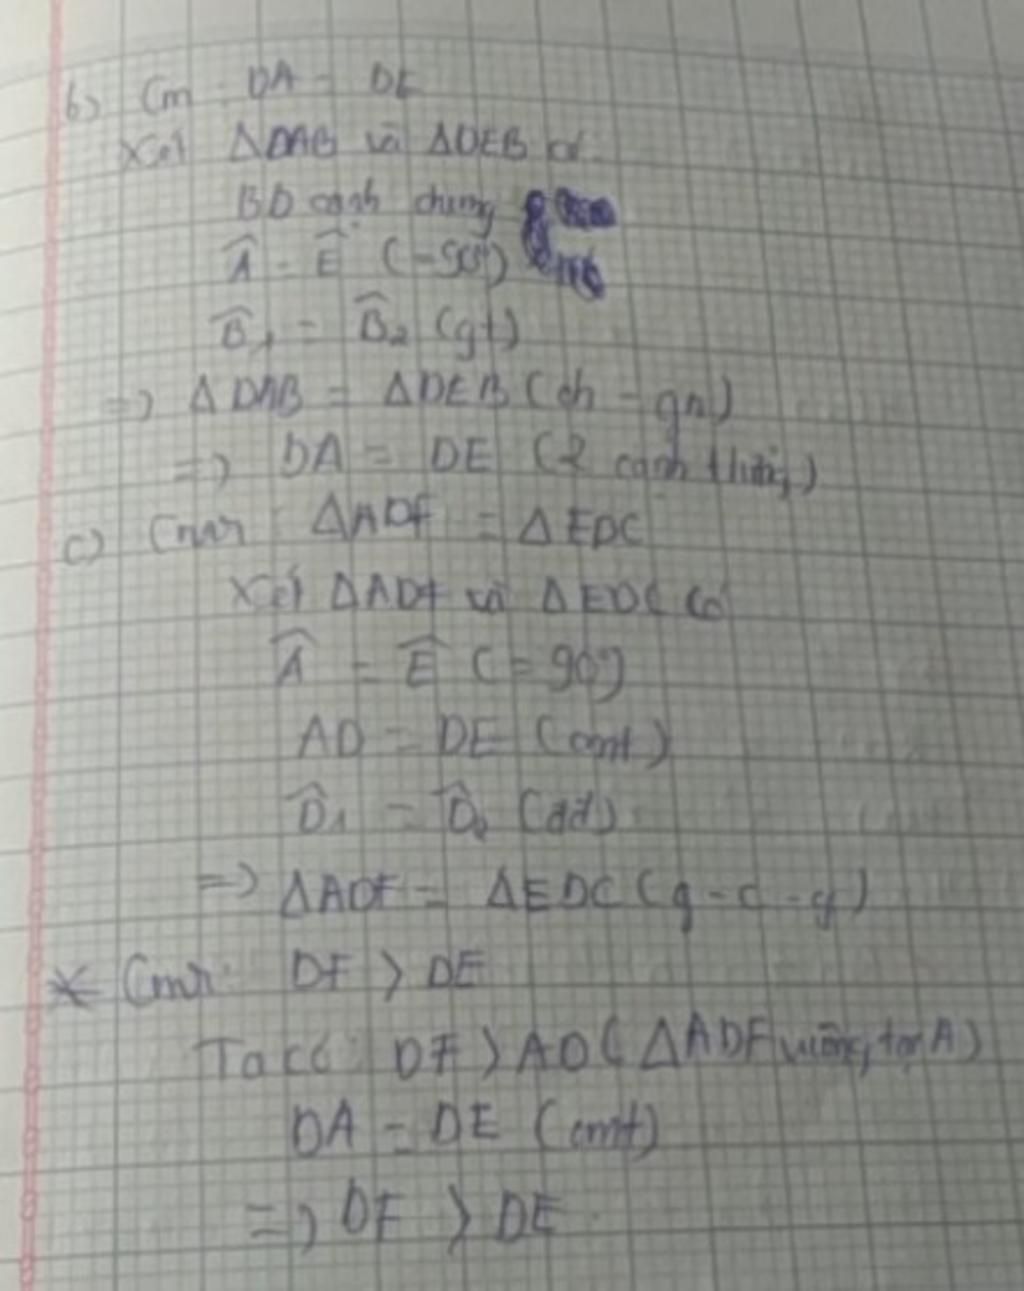 b) Cm : DA = DE
Xét ΔDAB và ΔDEB có
BD cạnh chung
Â = Ê (=90°)
B̂₁ = B̂₂ (gt)
=> ΔDAB = ΔDEB (ch - gn)
=> DA = DE (2 cạnh tương,)
c) Cmr : ΔADF = ΔEDC
Xét ΔADF và ΔEDC có
Â = Ê (= 90°)
AD = DE (cmt)
D̂₁ = D̂₂ (đđ)
=> ΔADF = ΔEDC (g - c - g)
* Cmr: DF > DE
Ta có: DF > AD (ΔADF vuông tại A)
DA = DE (cmt)
=> DF > DE